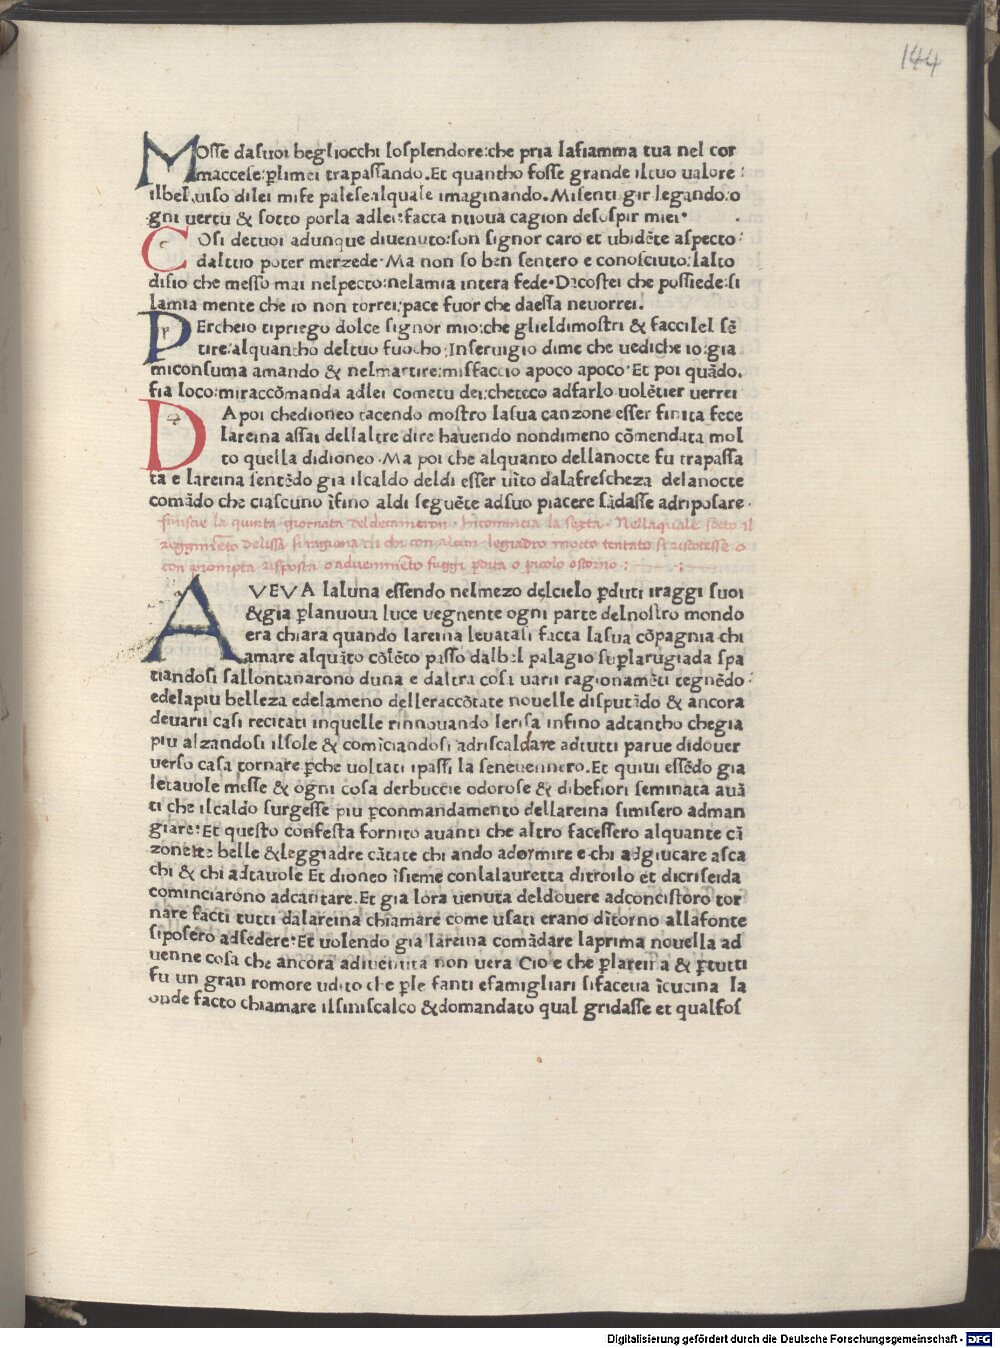 144
Mosse dasuoi begliocchi losplendore:che pria lafiamma tua nel cor
maccese:p̲limei trapassando.Et quantho fosse grande iltuo ualore:
ilbel uiso dilei mise palese:alquale imaginando.Misenti gir legando:o
gni uertu & sotto porla adlei:facta nuoua cagion desospir miei.
Cosi detuoi adunque diuenuto:son signor caro et ubidẽte aspecto:
daltuo poter merzede.Ma non so ben sentero e conosciuto:lalto
disio che messo mai nelpecto:nelamia intera fede.Dacostei che possiede:si
lamia mente che io non torrei:pace fuor che daessa neuorrei.
Percheio tipriego dolce signor mio:che glieldimostri & faccilel sẽ
tire:alquantho deltuo fuocho:Inseruigio dime che uediche io:gia
miconsuma amando & nelmartire:misfaccio apoco apoco.Et poi quãdo.
fia loco:miraccõmanda adlei cometu dei:cheteco adfarlo uolẽtier uerrei
DA poi chedioneo tacendo mostro lasua canzone esser finita fece
lareina assai dellaltre dire hauendo nondimeno cõmendata mol
to quella didioneo.Ma poi che alquanto dellanocte fu trapassa
ta e lareina sentẽdo gia ilcaldo deldi esser uĩto dalafrescheza delanocte
comãdo che ciascuno ĩfino aldi seguẽte adsuo piacere sãdasse adriposare.
finisce la quinta giornata del decameron. Incomincia la sexta. Nellaquale sotto il
reggimẽto delissa si ragiona di chi con alcun legiadro motto tentato si riscotesse o
con prompta risposta o aduenimẽto fuggi perdita o pericolo o scorno:
AVEVA laluna essendo nelmezo delcielo p̲duti iraggi suoi
&gia p̲lanuoua luce uegnente ogni parte delnostro mondo
era chiara quando lareina leuatasi facta lasua cõpagnia chi
amare alquãto cõlẽto passo dalbel palagio sup̲larugiada spa
tiandosi sallontanarono duna e daltra cosa uarii ragionamẽti tegnẽdo.
edelapiu belleza edelameno delleraccõtate nouelle disputãdo & ancora
deuarii casi recitati inquelle rinnouando lerisa infino adtantho chegia
piu alzandosi ilsole & comĩciandosi adriscaldare adtutti parue didouer
uerso casa tornare p̲che uoltati ipassi la seneuennero.Et quiui essẽdo gia
letauole messe & ogni cosa derbuccie odorose & dibefiori seminata auã
ti che ilcaldo surgesse piu p̲conmandamento dellareina simisero adman
giare:Et questo confesta fornito auanti che altro facessero alquante cã
zonette belle &leggiadre cãtate chi ando adormire e chi adgiucare asca
chi & chi adtauole Et dioneo ĩsieme conlalauretta ditroilo et dicriseida
cominciarono adcantare.Et gia lora uenuta deldouere adconcistoro tor
nare facti tutti dalareina chiamare come usati erano dĩtorno allafonte
siposero adsedere:Et uolendo gia lareina comãdare laprima nouella ad
uenne cosa che ancora adiuenuta non uera Cio e che p̲lareina & p̲tutti
fu un gran romore udito che p̲le fanti efamigliari sifaceua ĩcucina la
onde facto chiamare ilsiniscalco &domandato qual gridasse et qualfos
Digitalisierung gefördert durch die Deutsche Forschungsgemeinschaft - DFG